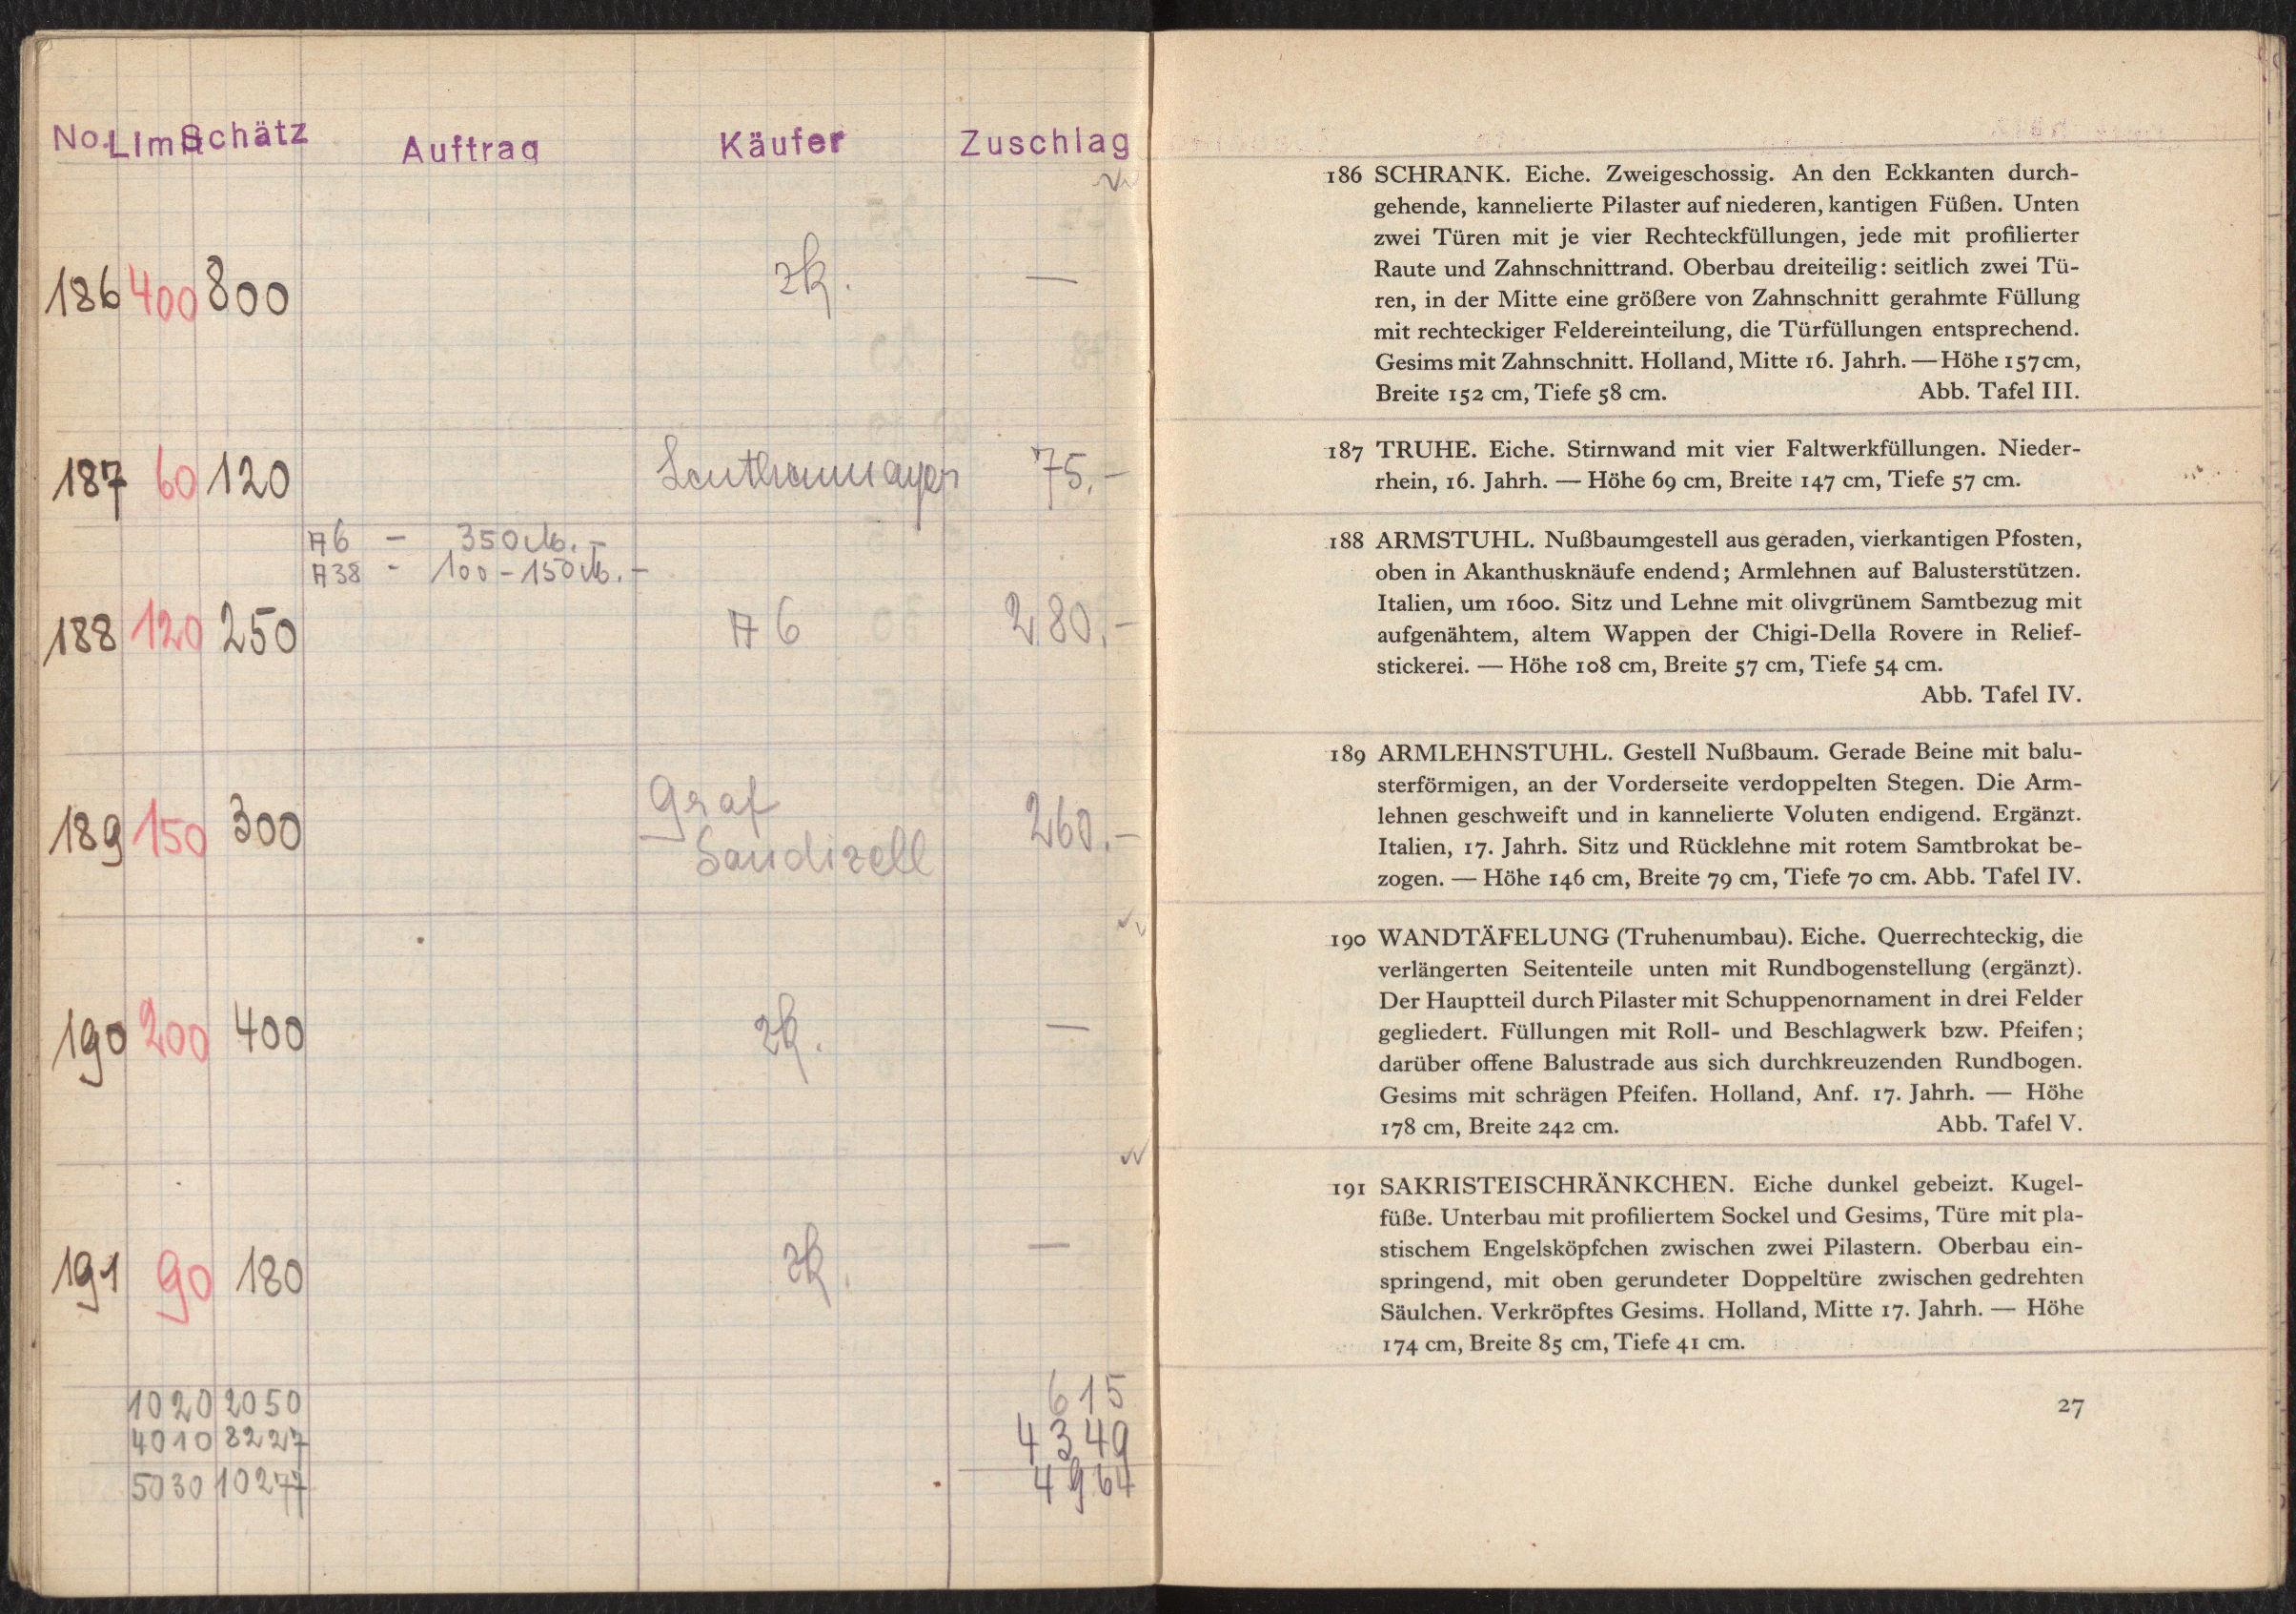 No. Limit Schätz Auftrag Käufer Zuschlag
186 400 800 zk. —
187 60 120 75.-
A6 - 350 M. -
A38 - 100-150 M. -
188 120 250 A6 280.-
189 150 300 Graf Sandizell 260.-
190 200 400 zk. —
191 90 180 zk. —
1020 2050 615
4010 8227 4349
5030 10277 4964
186 SCHRANK. Eiche. Zweigeschossig. An den Eckkanten durch-
gehende, kannelierte Pilaster auf niederen, kantigen Füßen. Unten
zwei Türen mit je vier Rechteckfüllungen, jede mit profilierter
Raute und Zahnschnittrand. Oberbau dreiteilig: seitlich zwei Tü-
ren, in der Mitte eine größere von Zahnschnitt gerahmte Füllung
mit rechteckiger Feldereinteilung, die Türfüllungen entsprechend.
Gesims mit Zahnschnitt. Holland, Mitte 16. Jahrh. — Höhe 157 cm,
Breite 152 cm, Tiefe 58 cm. Abb. Tafel III.
187 TRUHE. Eiche. Stirnwand mit vier Faltwerkfüllungen. Nieder-
rhein, 16. Jahrh. — Höhe 69 cm, Breite 147 cm, Tiefe 57 cm.
188 ARMSTUHL. Nußbaumgestell aus geraden, vierkantigen Pfosten,
oben in Akanthusknäufe endend; Armlehnen auf Balusterstützen.
Italien, um 1600. Sitz und Lehne mit olivgrünem Samtbezug mit
aufgenähtem, altem Wappen der Chigi-Della Rovere in Relief-
stickerei. — Höhe 108 cm, Breite 57 cm, Tiefe 54 cm.
Abb. Tafel IV.
189 ARMLEHNSTUHL. Gestell Nußbaum. Gerade Beine mit balu-
sterförmigen, an der Vorderseite verdoppelten Stegen. Die Arm-
lehnen geschweift und in kannelierte Voluten endigend. Ergänzt.
Italien, 17. Jahrh. Sitz und Rücklehne mit rotem Samtbrokat be-
zogen. — Höhe 146 cm, Breite 79 cm, Tiefe 70 cm. Abb. Tafel IV.
190 WANDTÄFELUNG (Truhenumbau). Eiche. Querrechteckig, die
verlängerten Seitenteile unten mit Rundbogenstellung (ergänzt).
Der Hauptteil durch Pilaster mit Schuppenornament in drei Felder
gegliedert. Füllungen mit Roll- und Beschlagwerk bzw. Pfeifen;
darüber offene Balustrade aus sich durchkreuzenden Rundbogen.
Gesims mit schrägen Pfeifen. Holland, Anf. 17. Jahrh. — Höhe
178 cm, Breite 242 cm. Abb. Tafel V.
191 SAKRISTEISCHRÄNKCHEN. Eiche dunkel gebeizt. Kugel-
füße. Unterbau mit profiliertem Sockel und Gesims, Türe mit pla-
stischem Engelsköpfchen zwischen zwei Pilastern. Oberbau ein-
springend, mit oben gerundeter Doppeltüre zwischen gedrehten
Säulchen. Verkröpftes Gesims. Holland, Mitte 17. Jahrh. — Höhe
174 cm, Breite 85 cm, Tiefe 41 cm.
27